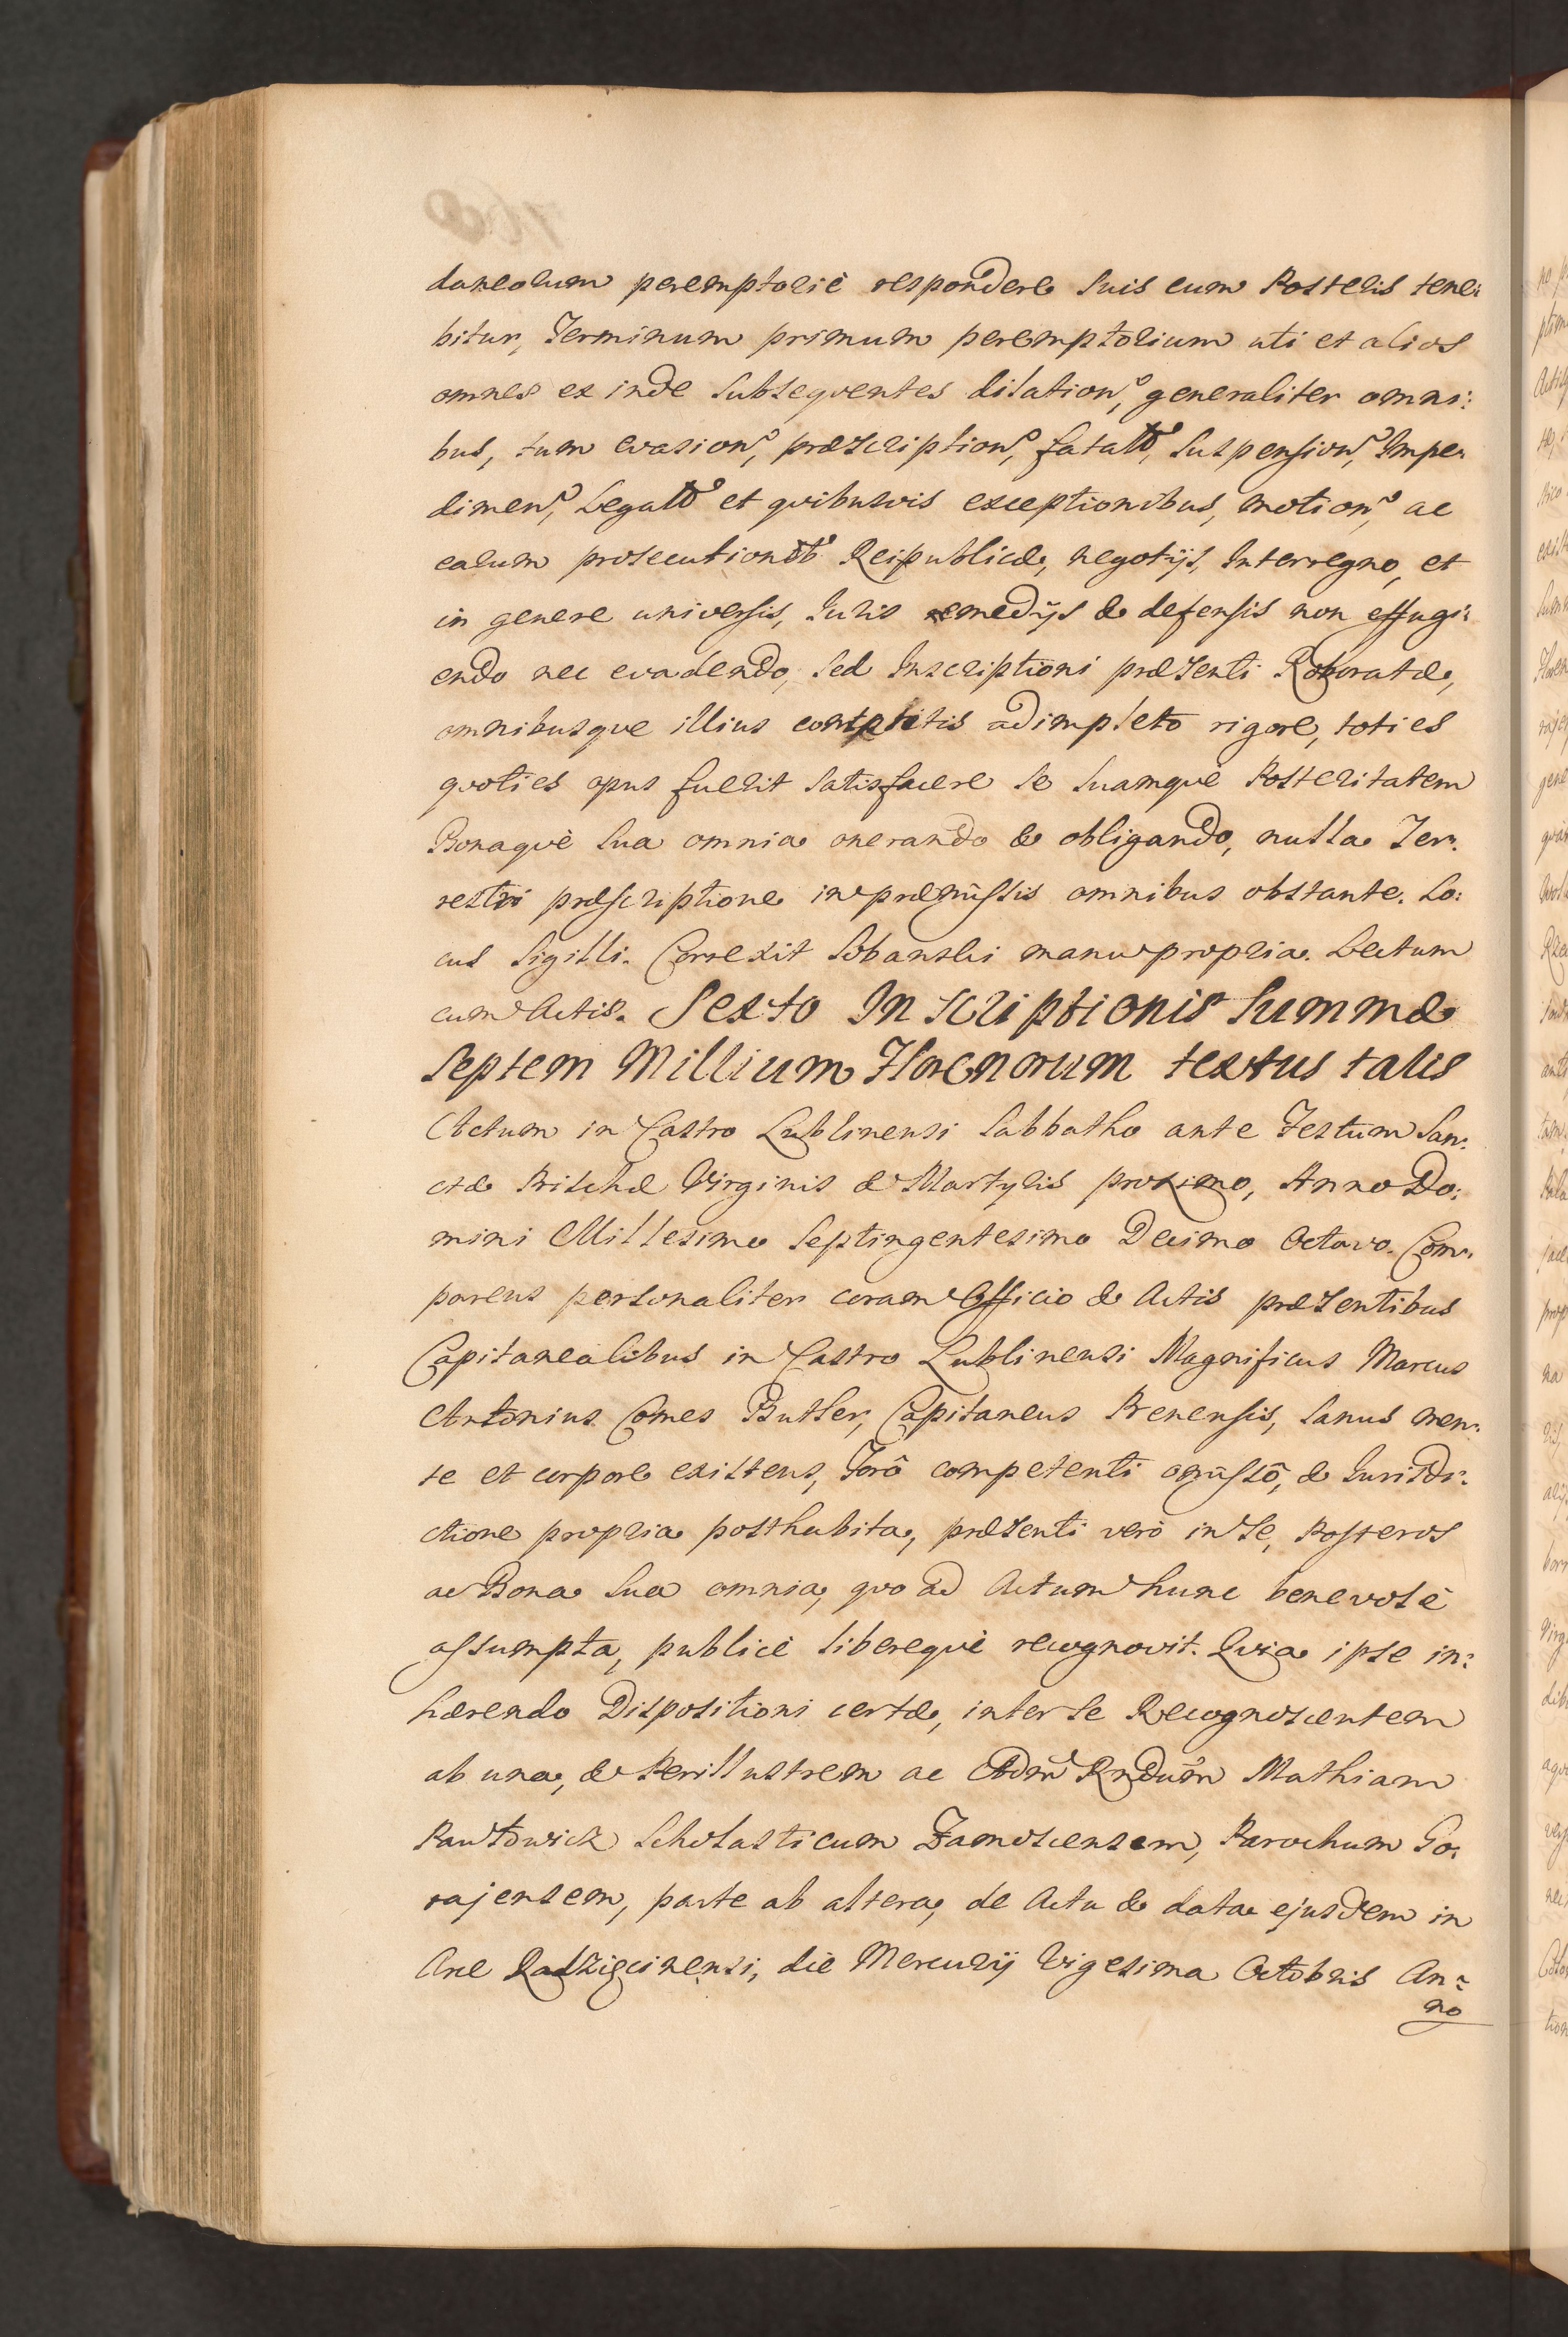 daneorum peremptoriè respondere suis cum Posteris tene:
bitur, Terminum primum peremptorium uti et alios
omnes ex inde subsequentes dilation', generaliter omni:
bus, tum evasion', præscription', fatalib', suspension', Impe:
dimen', Legalib' et quibusvis exceptionibus, motion', ac
earum prosecutionib' Reipublicæ, negotijs, Interregno, et
in genere universis, Juris remedijs & defensis non effugi:
endo nec evadendo, sed Inscriptioni præsenti Roboratæ,
omnibusque illius completis adimpleto rigore, toties
quoties opus fuerit satisfacere se suamque Posteritatem
Bonaquè sua omnia onerando & obligando, nulla Ter:
restri præscriptione in præmissis omnibus obstante. Lo:
cus Sigilli. Correxit Sobanski manu propria. Lectum
cum Actis. Sexto Inscriptionis Summæ
Septem Millium Florenorum textus talis
Actum in Castro Lublinensi Sabbatho ante Festum San:
ctæ Prischæ Virginis & Martyris proximo, Anno Do:
mini Millesimo Septingentesimo Decimo Octavo. Com:
parens personaliter coram Officio & Actis præsentibus
Capitanealibus in Castro Lublinensi Magnificus Marcus
Antonius Comes Butler, Capitaneus Prenensis, sanus men:
te et corpore existens, Forô competenti omissô, & Jurisdi:
ctione propria posthabita, præsenti verò in se, Posteros
ac Bona sua omnia, quo ad Actum hunc benevolè
assumpta, publicè liberequè recognovit. Quia ipse in:
hærendo Dispositioni certæ, inter se Recognoscentem
ab una, & Perillustrem ac Adm̃ Rndũm Mathiam
Pawłowicz Scholasticum Zamoscensem, Parochum Go:
rajensem, parte ab altera, de Actu & data ejusdem in
Arce Radzięcinensi, die Mercurij Vigesima Octobris An:
no